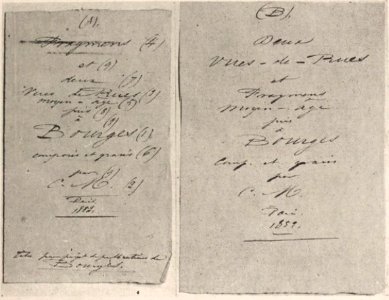 (A).
Fragmens (4)
et (9)
deux (7)
Vues de Rues (3)
moyen-age (5)
pris (8)
à (9)
Bourges (1)
composés et gravés (6)
par
C. M. (2)
Paris
Bourges.
(B).
Deux
Vues-de-Rues
et
Fragmens
Moyen-Age
pris
à
Bourges
Comp. et gravés
par
C. M.
Paris